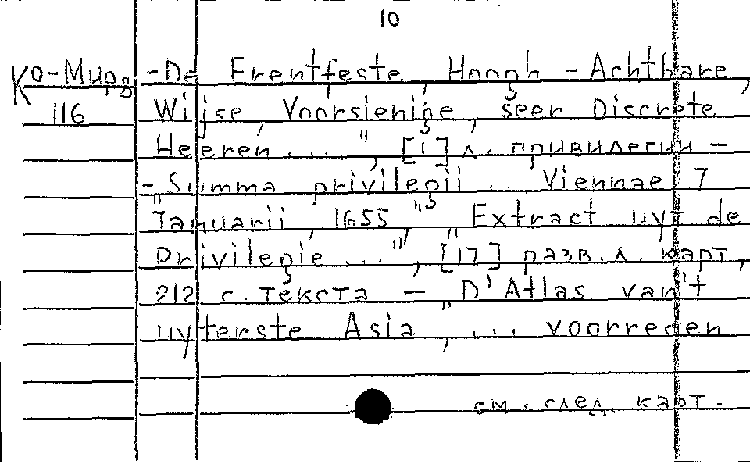 10
Ко-Мирв -De Erentfeste, Hoogh-Achtbare,
116 Wijse, Voorsienige, seer Discrete
Heeren ...", [1] л. привилегии -
- "Summa privilegii ... Viennae 7
Januarii, 1655", "Extract uyt de
Privilegie ...", [17] разв. л. карт,
212 с. текста - "D'Atlas van't
uyterste Asia, ... voorreden
см. след. карт.